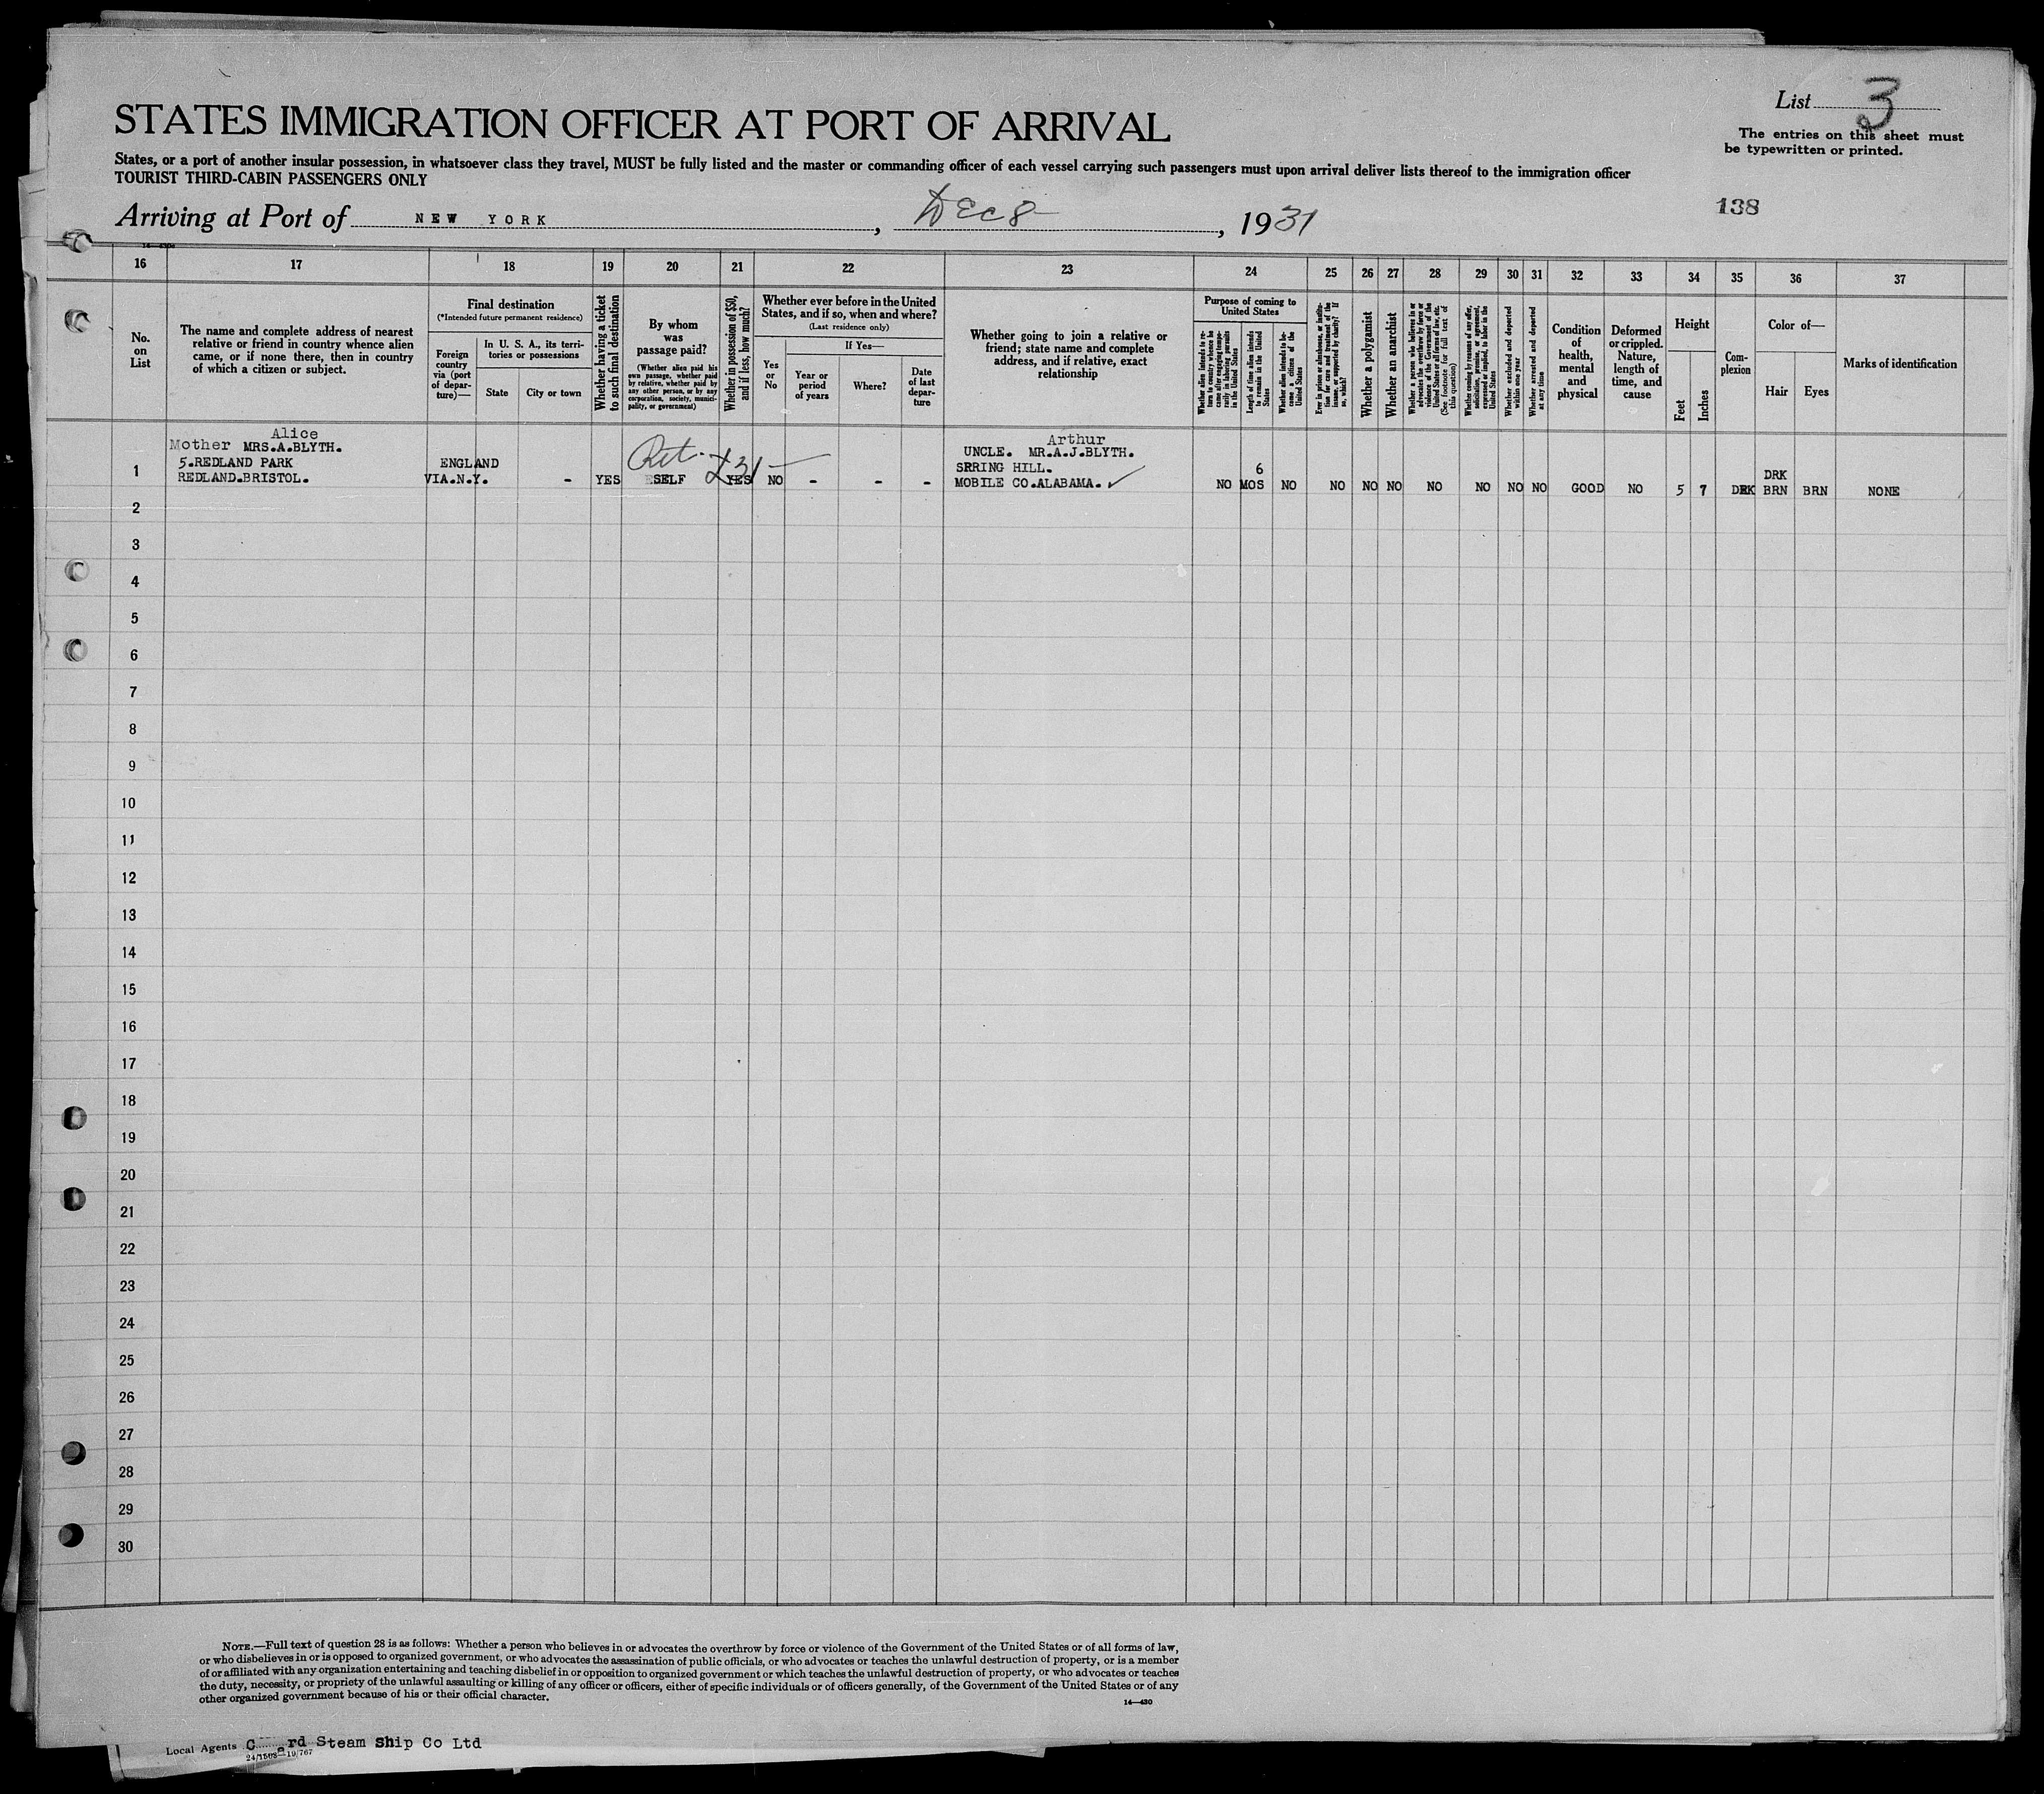 List 3
STATES IMMIGRATION OFFICER AT PORT OF ARRIVAL
The entries on this sheet must
be typewritten or printed.
States, or a port of another insular possession, in whatsoever class they travel, MUST be fully listed and the master or commanding officer of each vessel carrying such passengers must upon arrival deliver lists thereof to the immigration officer
TOURIST THIRD-CABIN PASSENGERS ONLY
138
Arriving at Port of NEW YORK, Dec 8, 1931
16 17 18 19 20 21 22 23 24 25 26 27 28 29 30 31 32 33 34 35 36 37
No.
on
List
The name and complete address of nearest
relative or friend in country whence alien
came, or if none there, then in country
of which a citizen or subject.
Final destination
(*Intended future permanent residence)
Foreign
country
via (port
of depar-
ture)—
In U. S. A., its terri-
tories or possessions
State
City or town
Whether having a ticket
to such final destination
By whom
was
passage paid?
(Whether alien paid his
own passage, whether paid
by relative, whether paid by
any other person, or by any
corporation, society, munici-
pality, or government)
Whether in possession of $50,
and if less, how much?
Whether ever before in the United
States, and if so, when and where?
(Last residence only)
Yes
or
No
If Yes—
Year or
period
of years
Where?
Date
of last
depar-
ture
Whether going to join a relative or
friend; state name and complete
address, and if relative, exact
relationship
Purpose of coming to
United States
Whether alien intends to re-
turn to country whence he
came after engaging tempo-
rarily in laboring pursuits
in the United States
Length of time alien intends
to remain in the United
States
Whether alien intends to be-
come a citizen of the
United States
Ever in prison or almshouse, or institu-
tion for care and treatment of the
insane, or supported by charity? If
so, which?
Whether a polygamist
Whether an anarchist
Whether a person who believes in or
advocates the overthrow by force or
violence of the Government of the
United States or all forms of law, etc.
(See footnote for full text of
this question)
Whether coming by reason of any offer,
solicitation, promise, or agreement,
expressed or implied, to labor in the
United States
Whether excluded and deported
within one year
Whether arrested and deported
at any time
Condition
of
health,
mental
and
physical
Deformed
or crippled.
Nature,
length of
time, and
cause
Height
Feet
Inches
Com-
plexion
Color of—
Hair
Eyes
Marks of identification
Alice
Mother MRS.A.BLYTH.
5.REDLAND PARK
REDLAND.BRISTOL.
ENGLAND
VIA.N.Y. -
YES
Ret.
SELF
£31 —
YES
NO - - -
Arthur
UNCLE. MR.A.J.BLYTH.
SRRING HILL.
MOBILE CO.ALABAMA. ✓
NO
6
MOS
NO NO NO NO NO NO NO NO GOOD NO 5 7 DRK
DRK
BRN
BRN NONE
1
2
3
4
5
6
7
8
9
10
11
12
13
14
15
16
17
18
19
20
21
22
23
24
25
26
27
28
29
30
NOTE.—Full text of question 28 is as follows: Whether a person who believes in or advocates the overthrow by force or violence of the Government of the United States or of all forms of law,
or who disbelieves in or is opposed to organized government, or who advocates the assassination of public officials, or who advocates or teaches the unlawful destruction of property, or is a member
of or affiliated with any organization entertaining and teaching disbelief in or opposition to organized government or which teaches the unlawful destruction of property, or who advocates or teaches
the duty, necessity, or propriety of the unlawful assaulting or killing of any officer or officers, either of specific individuals or of officers generally, of the Government of the United States or of any
other organized government because of his or their official character.
14—430
Local Agents Steam Ship Co Ltd